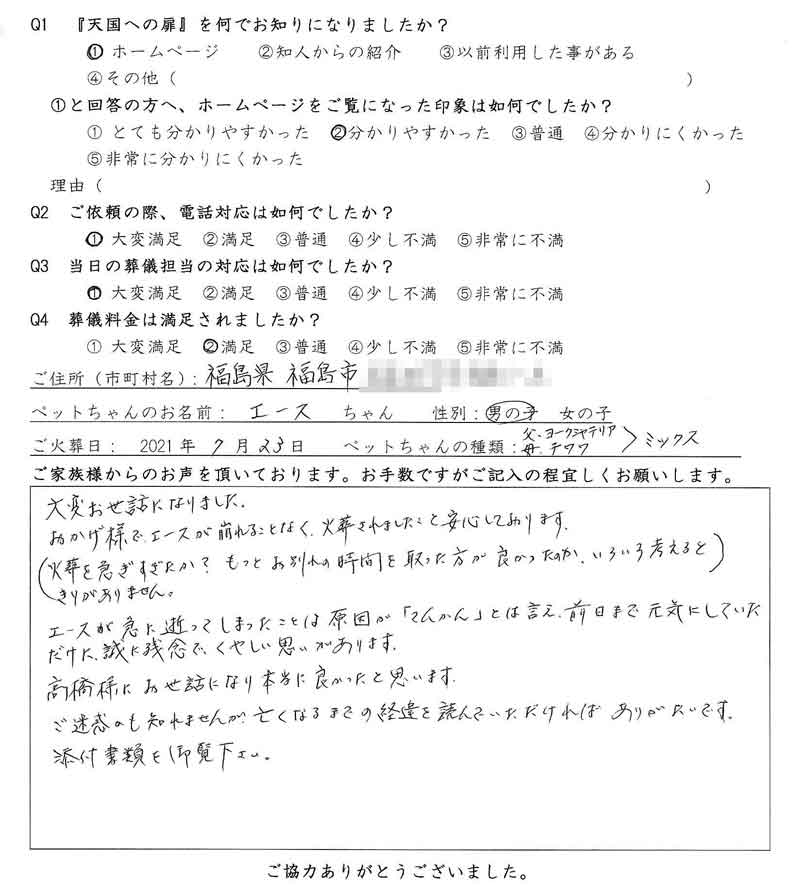 Q1 『天国への扉』を何でお知りになりましたか？
① ホームページ ②知人からの紹介 ③以前利用した事がある
④その他（ ）
①と回答の方へ、ホームページをご覧になった印象は如何でしたか？
① とても分かりやすかった ②分かりやすかった ③普通 ④分かりにくかった
⑤非常に分かりにくかった
理由（ ）
Q2 ご依頼の際、電話対応は如何でしたか？
① 大変満足 ②満足 ③普通 ④少し不満 ⑤非常に不満
Q3 当日の葬儀担当の対応は如何でしたか？
① 大変満足 ②満足 ③普通 ④少し不満 ⑤非常に不満
Q4 葬儀料金は満足されましたか？
① 大変満足 ②満足 ③普通 ④少し不満 ⑤非常に不満
ご住所（市町村名）：福島県 福島市
ペットちゃんのお名前： エース ちゃん 性別：男の子 女の子
ご火葬日： 2021年 7月 23日 ペットちゃんの種類：父.ヨークシャテリア 母.チワワ ＞ミックス
ご家族様からのお声を頂いております。お手数ですがご記入の程宜しくお願いします。
大変お世話になりました.
おかげ様で.エースが崩れることなく.火葬されましたこと安心しております.
(火葬を急ぎすぎたか？ もっとお別れの時間を取った方が良かったのか.いろいろ考えると
きりがありません。)
エースが急に逝ってしまったことは原因が「てんかん」とは言え.前日まで元気にしていた
だけに、誠に残念で.くやしい思いがあります.
高橋様にお世話になり本当に良かったと思います.
ご迷惑かも知れませんが.亡くなるまでの経過を読んでいただければ ありがたいです.
添付書類を御覧下さい。
ご協力ありがとうございました。